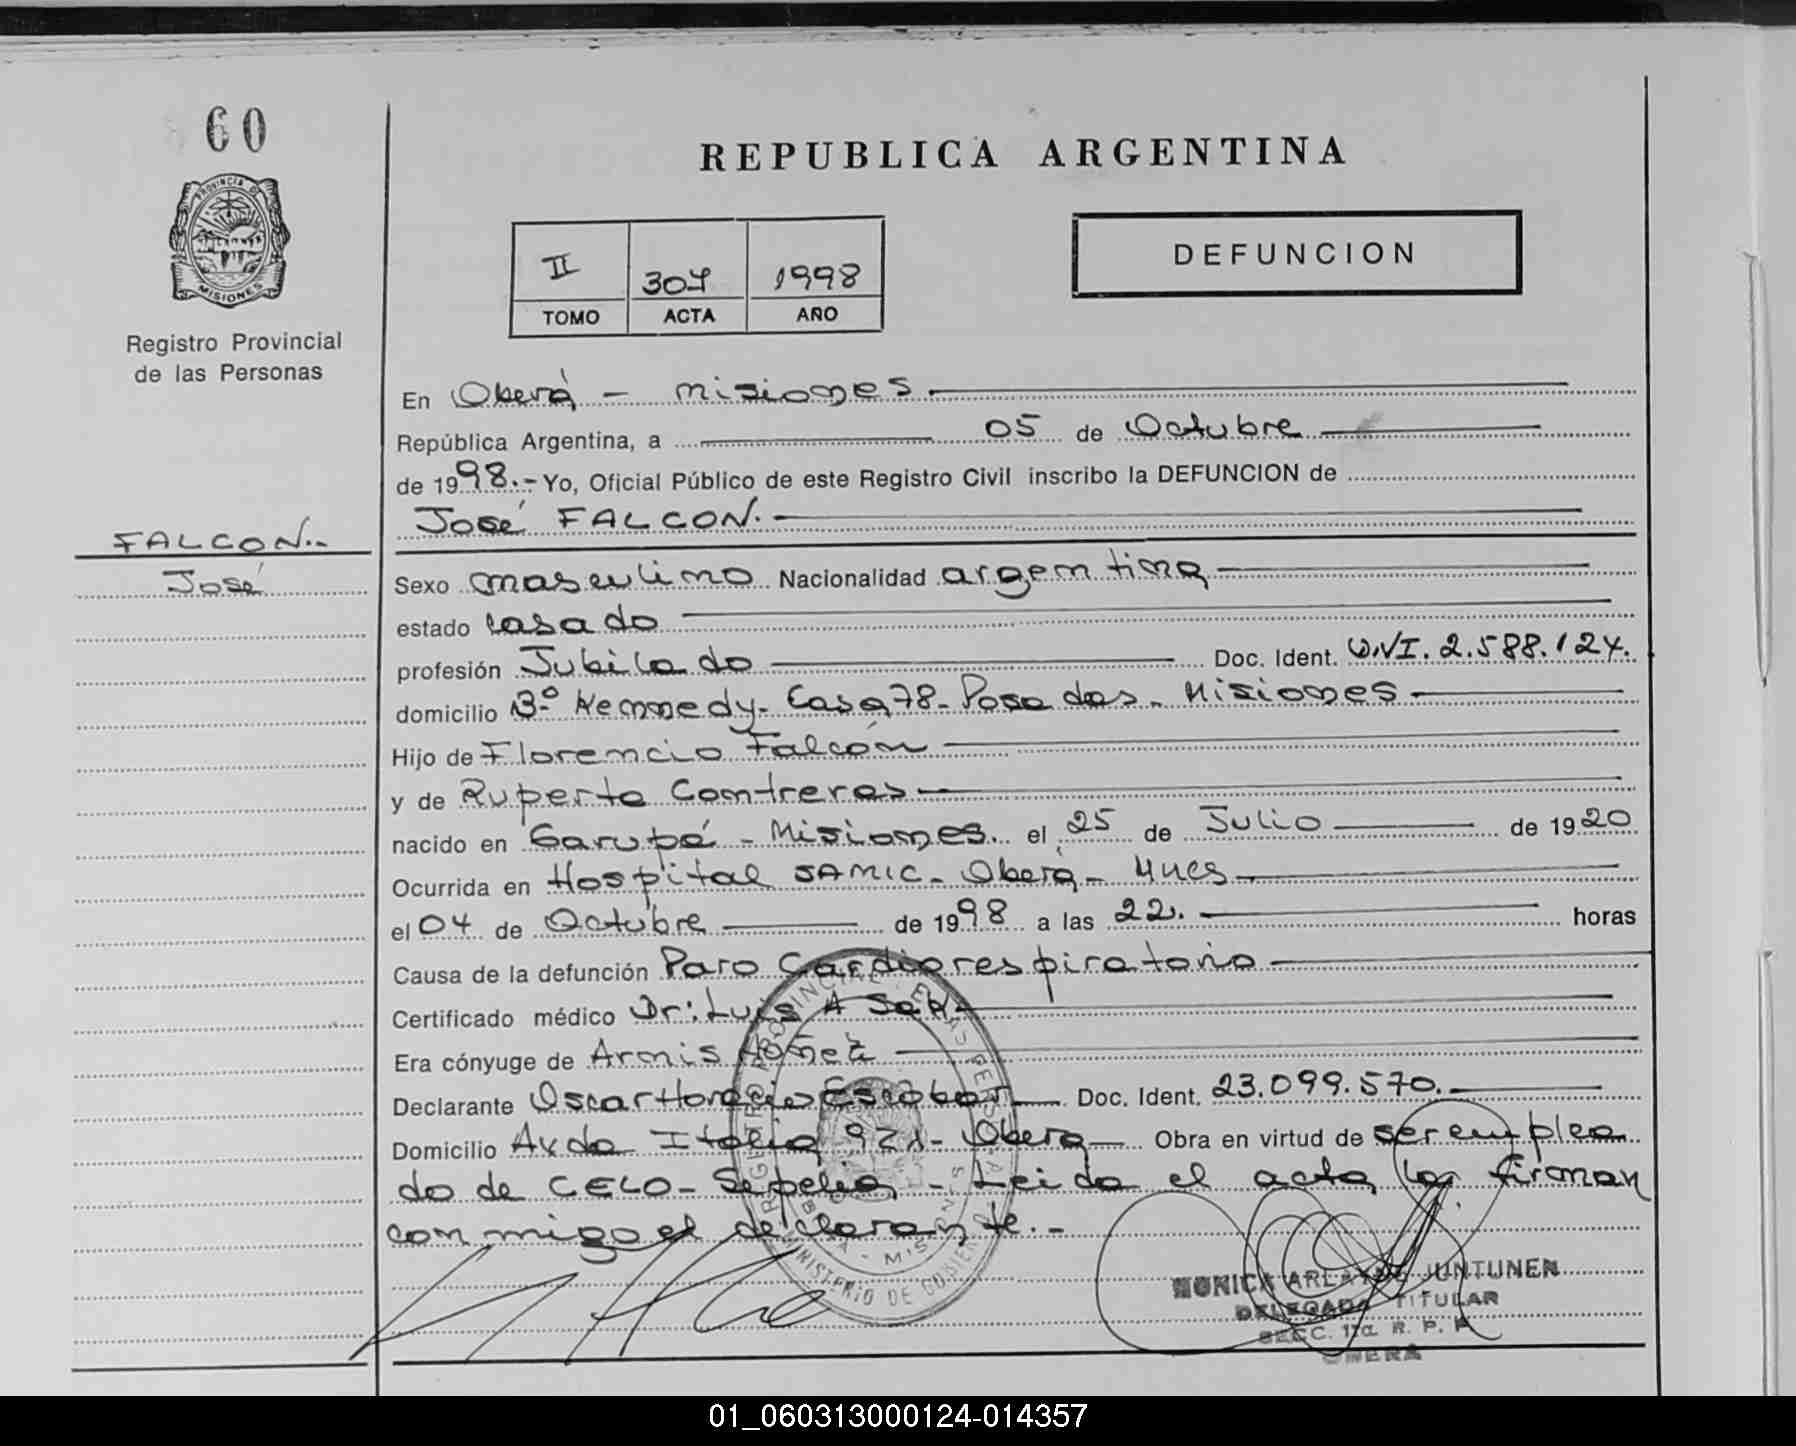 60
REPUBLICA ARGENTINA
PROVINCIA DE
MISIONES
Registro Provincial
de las Personas
II 307 1998
TOMO ACTA AÑO
DEFUNCION
En Oberá - Misiones
República Argentina, a 05 de Octubre
de 1998.- Yo, Oficial Público de este Registro Civil inscribo la DEFUNCION de
José FALCON.-
FALCON.-
José
Sexo masculino Nacionalidad argentina
estado casado
profesión Jubilado Doc. Ident. 2.588.124.
domicilio Bº Kennedy- Casa 78- Posadas- Misiones
Hijo de Florencio Falcón
y de Ruperta Contreras
nacido en Garupá - Misiones. el 25 de Julio de 1920
Ocurrida en Hospital SAMIC- Oberá- Mnes
el 04 de Octubre de 1998 a las 22. horas
Causa de la defunción Paro Cardiorespiratorio
Certificado médico Dr: Luis A
Era cónyuge de Armis
Declarante Oscar Horacio Escobar Doc. Ident. 23.099.570.
Domicilio Avda Italia - Oberá Obra en virtud de ser emplea
do de CELO- Sepelio, - Leida el acta la firman
conmigo el declarante.-
MINISTERIO DE GOBIERNO
MONICA JUNTUNEN
DELEGADA TITULAR
SECC. 1ra. R. P. P.
OBERA
01_060313000124-014357